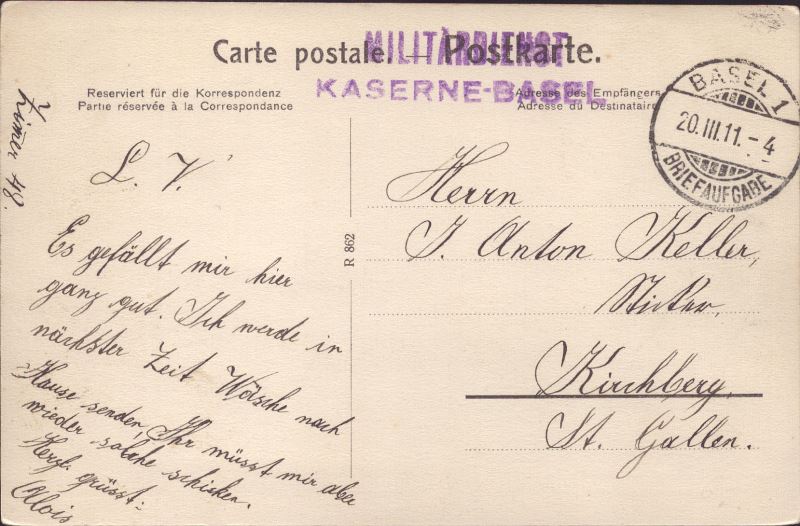 Carte postale. — Postkarte.
MILITÄRDIENST
KASERNE-BASEL
Reserviert für die Korrespondenz
Partie réservée à la Correspondance
Adresse des Empfängers
Adresse du Destinataire
BASEL 1
20.III.11. - 4
BRIEFAUFGABE
Zimmer 48.
L. V.
Es gefällt mir hier
ganz gut. Ich werde in
nächster Zeit Wäsche nach
Hause senden, Ihr müsst mir aber
wieder solche schicken.
Herzl. grüsst:
Alois
R 862
Herrn
J. Anton Keller,
Sticker,
Kirchberg,
St. Gallen.